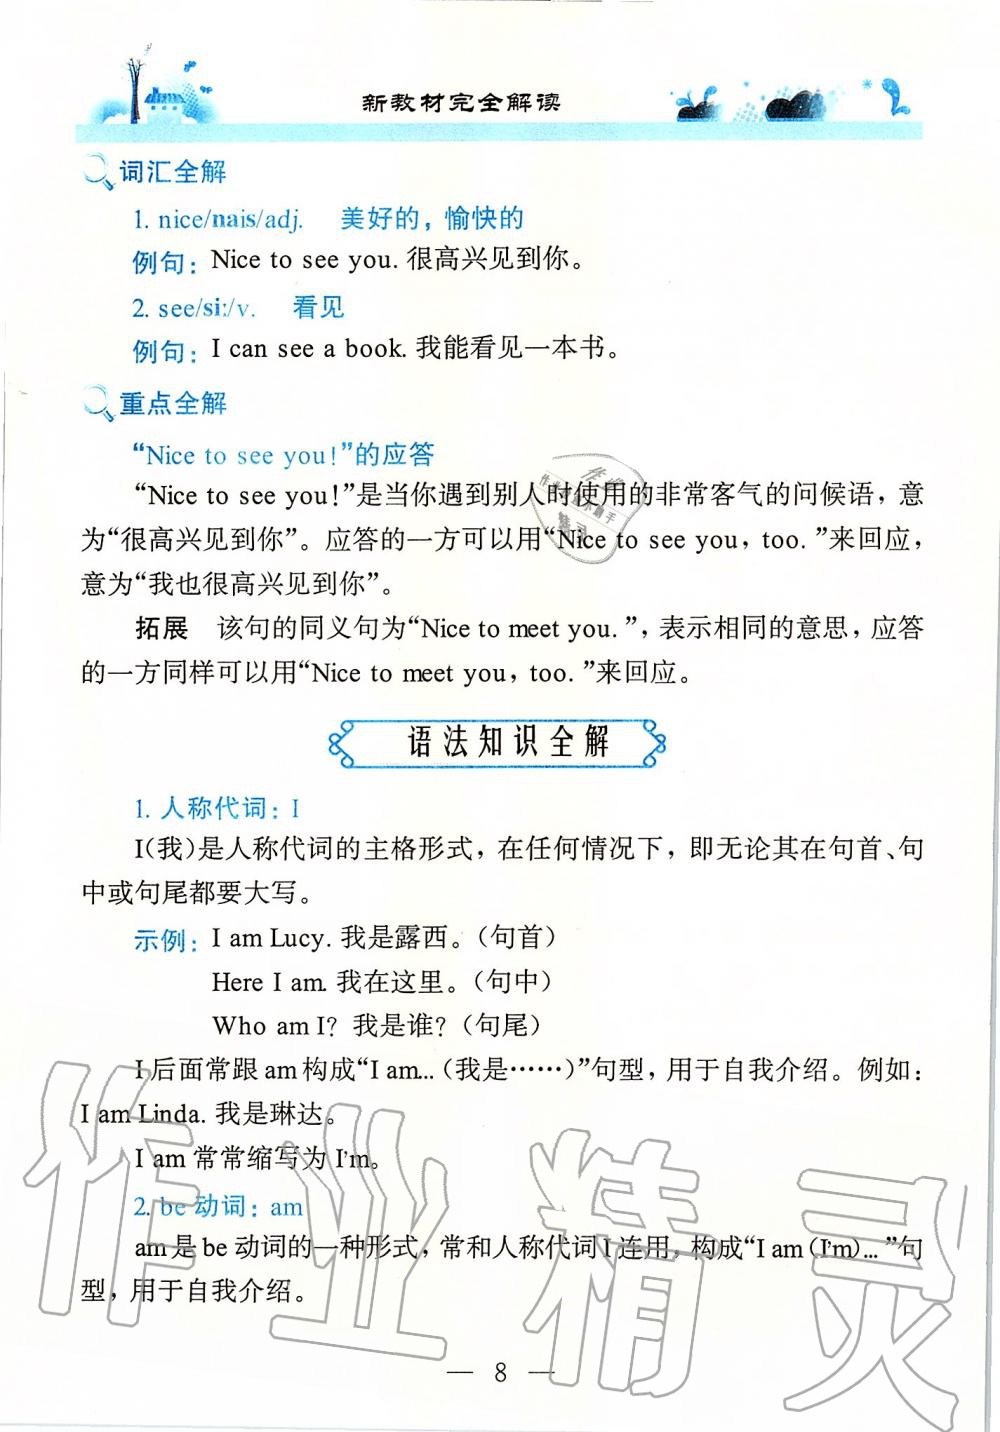 新教材完全解读
词汇全解
1. nice/nais/adj. 美好的，愉快的
例句：Nice to see you. 很高兴见到你。
2. see/siː/v. 看见
例句：I can see a book. 我能看见一本书。
重点全解
“Nice to see you!”的应答
“Nice to see you!”是当你遇到别人时使用的非常客气的问候语，意
为“很高兴见到你”。应答的一方可以用“Nice to see you, too. ”来回应，
意为“我也很高兴见到你”。
拓展 该句的同义句为“Nice to meet you. ”，表示相同的意思，应答
的一方同样可以用“Nice to meet you, too. ”来回应。
语法知识全解
1. 人称代词：I
I（我）是人称代词的主格形式，在任何情况下，即无论其在句首、句
中或句尾都要大写。
示例：I am Lucy. 我是露西。（句首）
Here I am. 我在这里。（句中）
Who am I? 我是谁?（句尾）
I 后面常跟 am 构成“I am...（我是……）”句型，用于自我介绍。例如：
I am Linda. 我是琳达。
I am 常常缩写为 I'm。
2. be 动词：am
am 是 be 动词的一种形式，常和人称代词 I 连用，构成“I am (I'm)... ”句
型，用于自我介绍。
— 8 —
作业精灵